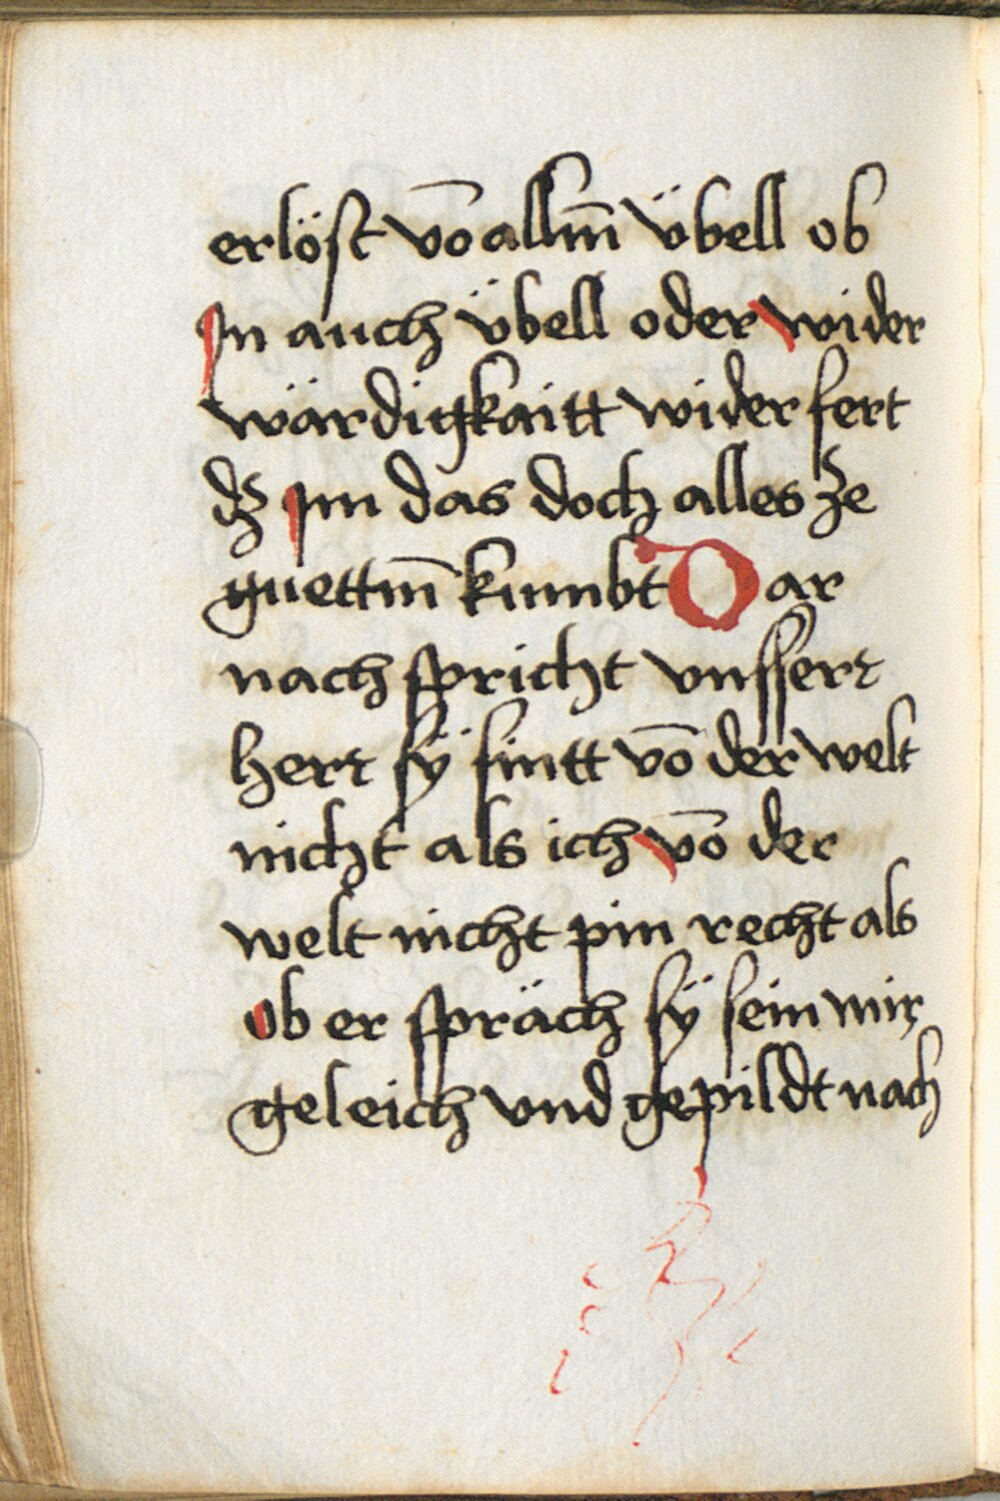 erlöst vō allm̄ übell ob
Jn auch übell oder wider
wärdigkaitt wider fert
dꝫ Jm das doch alles ze
guettm̄ kumbt Dar
nach spricht vnsserr
herr sÿ sintt vō der welt
nicht als ich vō der
welt nicht pin recht als
ob er spräch sÿ sein mir
geleich vnd gepildt nach